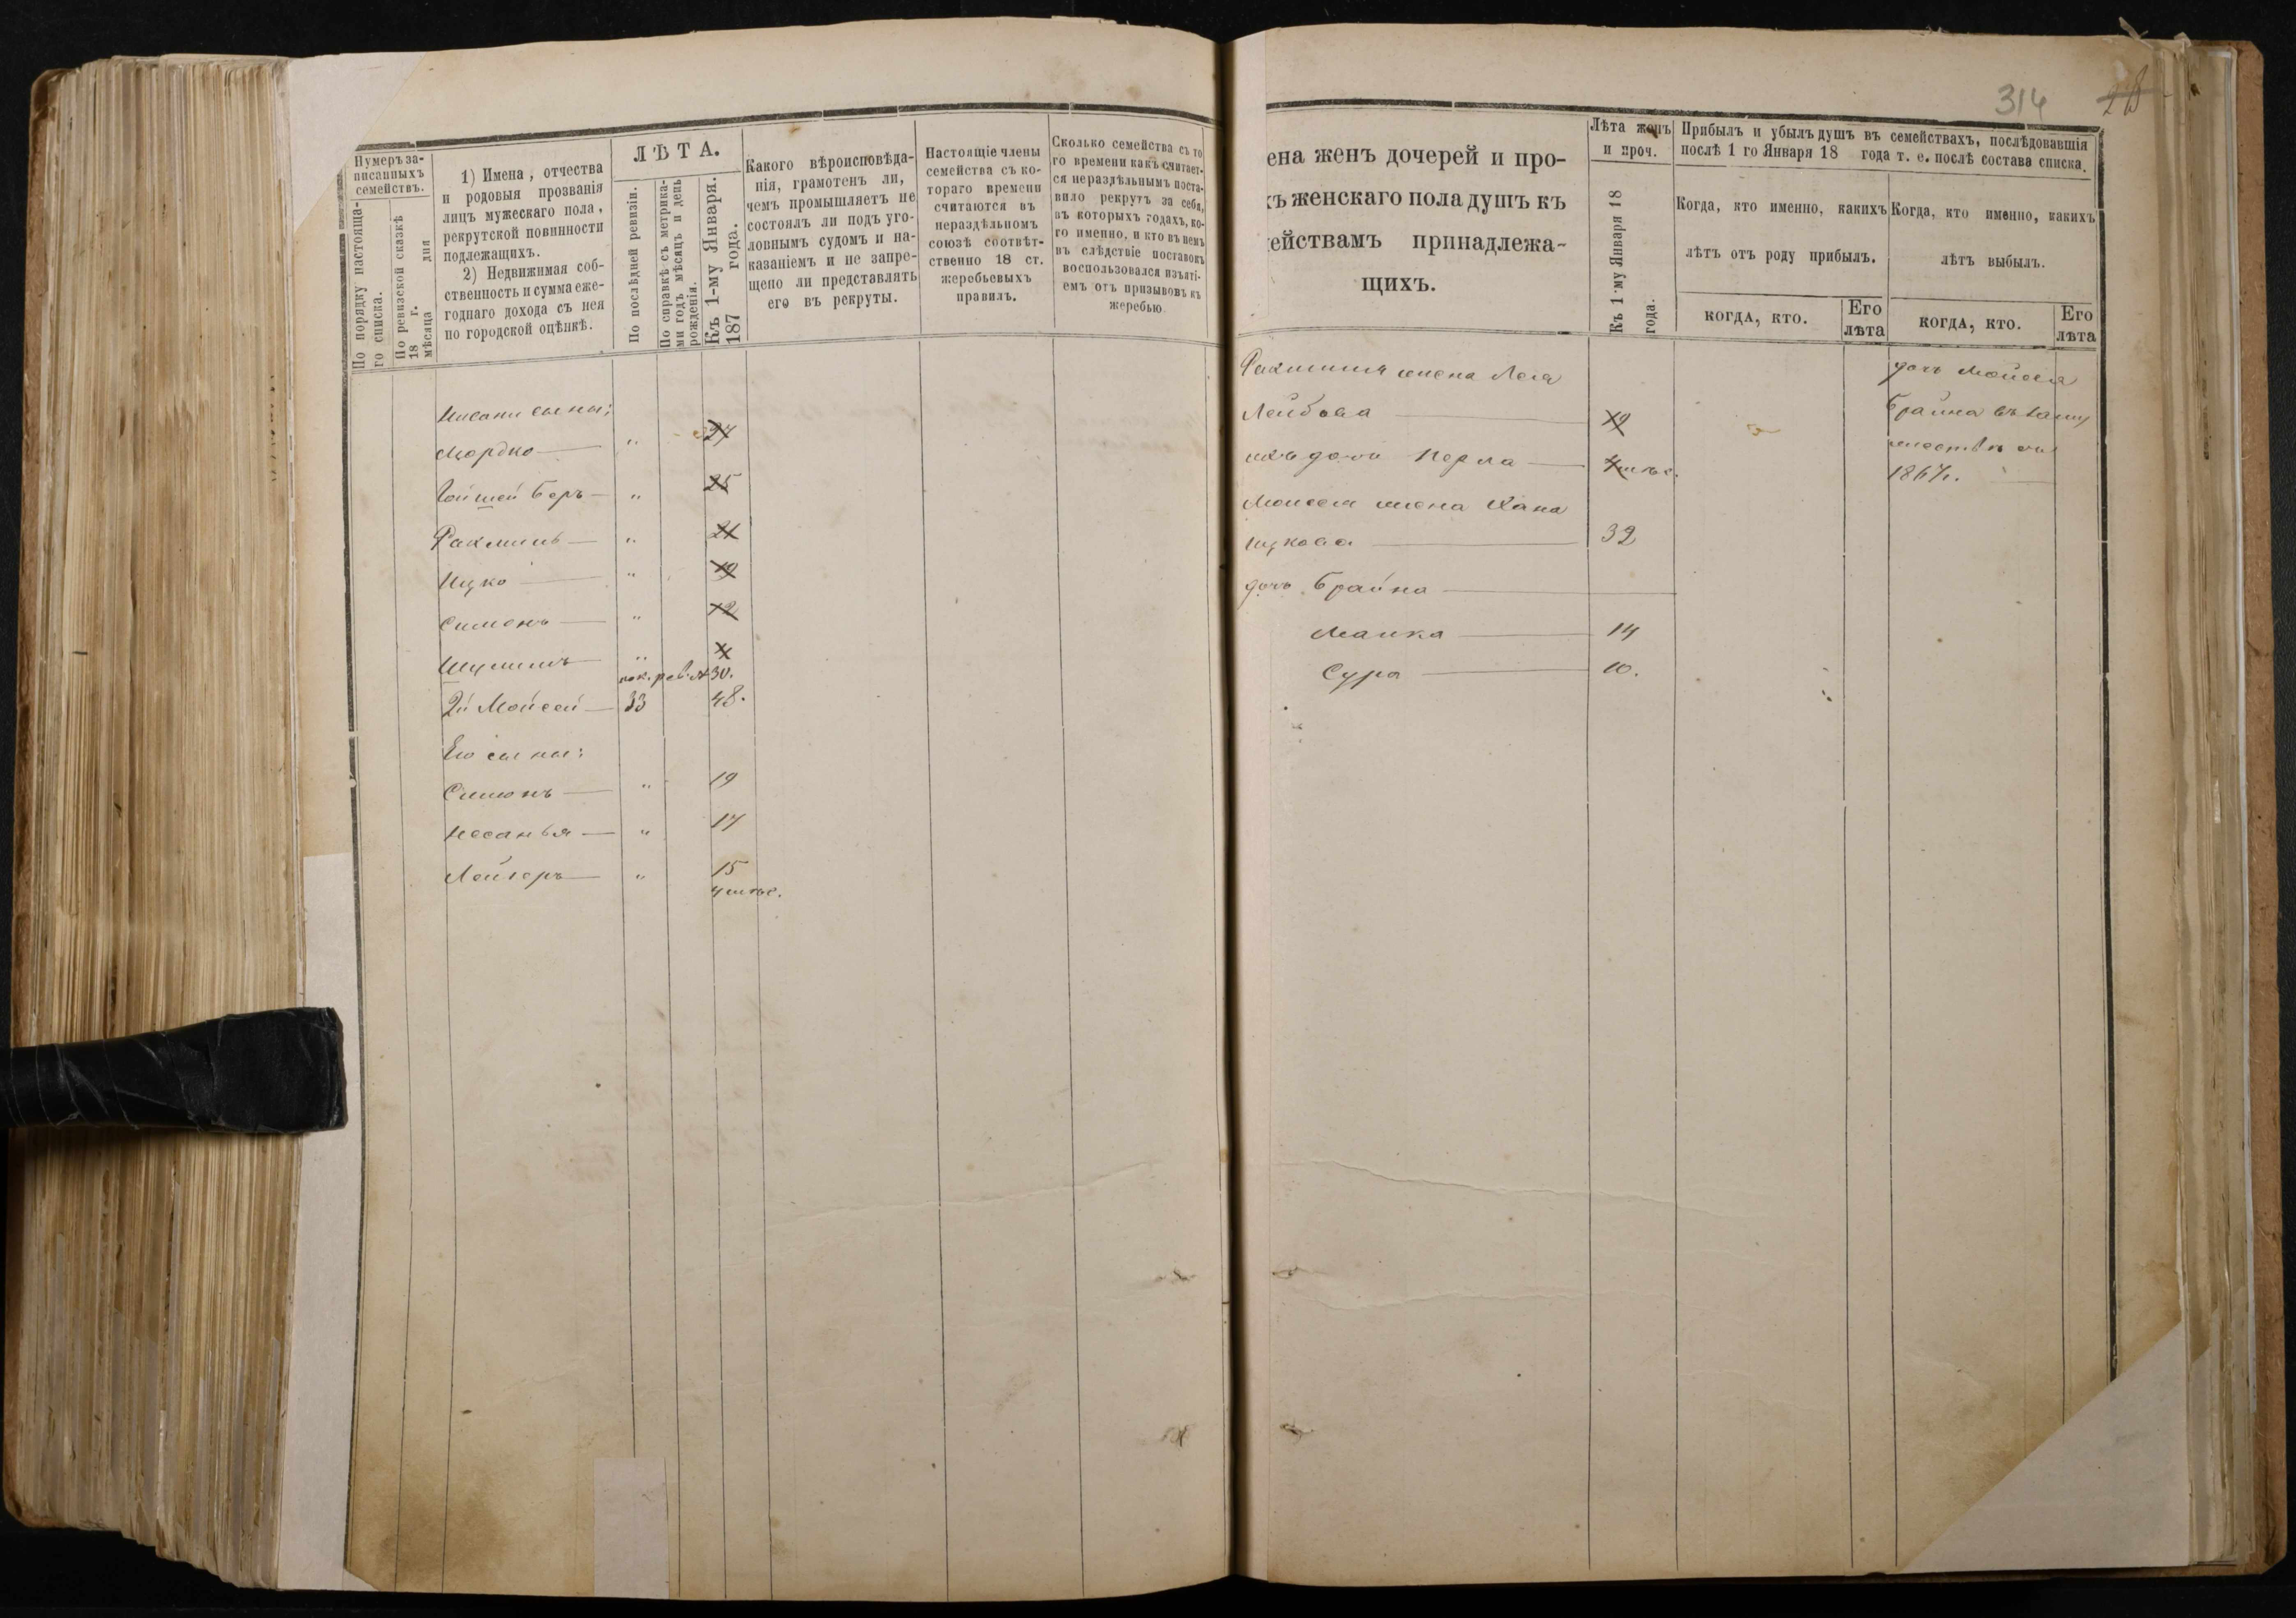 314
28
Нумеръ за-
писанныхъ
семействъ.
По порядку настояща-
го списка.
По ревизской сказкѣ
18 г.
мѣсяца дня
1) Имена, отчества
и родовыя прозванія
лицъ мужескаго пола,
рекрутской повинности
подлежащихъ.
2) Недвижимая соб-
ственность и сумма еже-
годнаго дохода съ нея
по городской оцѣнкѣ.
ЛѢТА.
По послѣдней ревизіи.
По справкѣ съ метрика-
ми годъ мѣсяцъ и день
рожденія.
Къ 1-му Января.
187 года.
Какого вѣроисповѣда-
нія, грамотенъ ли,
чемъ промышляетъ не
состоялъ ли подъ уго-
ловнымъ судомъ и на-
казаніемъ и не запре-
щено ли представлять
его въ рекруты.
Настоящіе члены
семейства съ ко-
тораго времени
считаются въ
нераздѣльномъ
союзѣ соотвѣт-
ственно 18 ст.
жеребьевыхъ
правилъ.
Сколько семейства съ то
го времени какъ считает-
ся нераздѣльнымъ поста-
вило рекрутъ за себя,
въ которыхъ годахъ, ко-
го именно, и кто въ немъ
въ слѣдствіе поставокъ
воспользовался изъяті-
емъ отъ призывовъ къ
жеребью
сыны:
Мордко — „ 27
Гойшей Беръ — „ 25
Рахмиль — „ 21
Ицко — „ 19
Симонъ — „ 12
Шулимъ — „ 4
пок. рев. № 30.
2й Мойсей — 33 48.
Его сыны:
Симонъ — „ 19
Несанья — „ 17
Лейзеръ — „ 15
4 мѣс.
ена женъ дочерей и про-
хъ женскаго пола душъ къ
ействамъ принадлежа-
щихъ.
Лѣта женъ
и проч.
Къ 1 му Января 18
года.
Прибылъ и убылъ душъ въ семействахъ, послѣдовавшія
послѣ 1 го Января 18 года т. е. послѣ состава списка.
Когда, кто именно, какихъ
лѣтъ отъ роду прибылъ.
Когда, кто именно, какихъ
лѣтъ выбылъ.
КОГДА, КТО.
Его
лѣта
КОГДА, КТО.
Его
лѣта
Рахмиля жена Лея
Лейбова — 19
ихъ дочь Перла — 4 мѣс.
Моисея жена Хана
Ицкова — 32
дочь Брайна —
Малка — 14
Сура — 10.
дочь Мойсея
Брайна въ заму
жествѣ съ
1867г. —